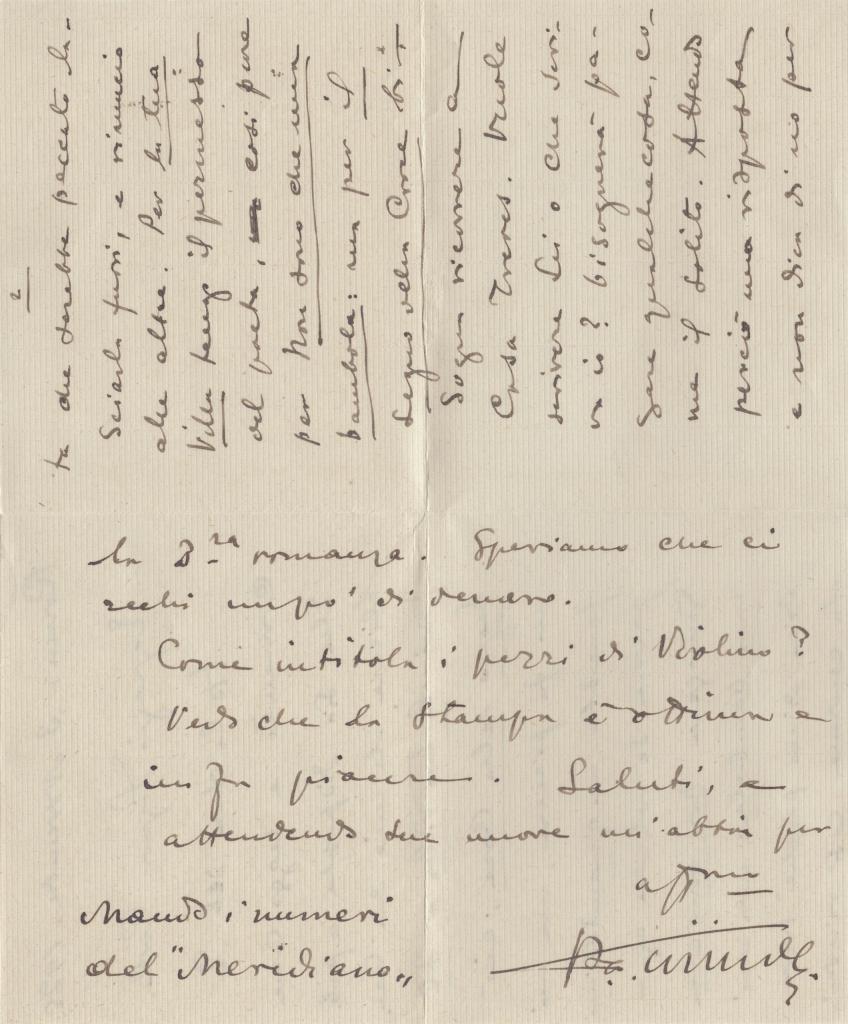 2
ta che sarebbe peccato la-
sciarla fuori, e rinuncio
alle altre. Per la tua
Villa tengo il permesso
del poeta, così pure
per Non sono che una
bambola: ma per il
Segno della Croce bi-
sogna ricorrere a
Casa Treves. Vuole
scrivere Lei o che scri-
va io? bisognerà pa-
gare qualchecosa, co-
me il solito. Attendo
perciò una risposta
e non dica di no per
la 3ra romanza. Speriamo che ci
rechi unpo' di denaro.
Come intitola i pezzi di Violino?
Vedo che la stampa è ottima e
mi fa piacere. Saluti, e
attendendo sue nuove mi abbia per
affmo
Mando i numeri
del "Meridiano„